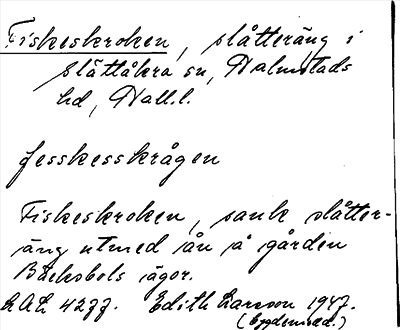 Fiskeskroken, slåtteräng i
Slättåkra sn, Halmstads
hd, Hall.l.
fesskesskrågen
Fiskeskroken, sank slåtter-
äng utmed ån å gården
Bäckabols ägor.
Edith Larsson 1947.
(bygdemed.)